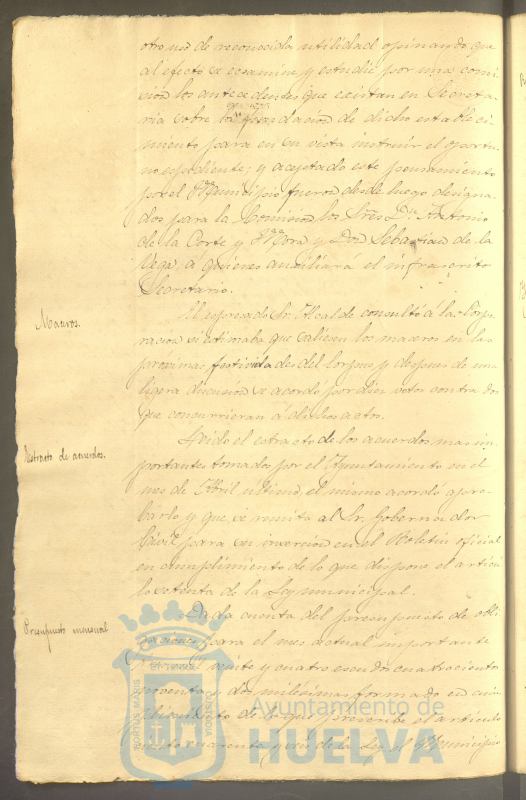 otro uso de reconocida utilidad opinando que
al efecto se examine y estudie por una comi
sion los antecedentes que existan en Secreta
ría sobre la fundacion de dicho estableci
miento para en su vista instruir el oportu
no espediente; y aceptado este pensamiento
por el Municipio fueron desde luego designa
dos para la Comision los Sres. Dn. Antonio
de la Corte y Mora y Don Sebastian de la
Vega, á quienes auxiliará el infrascrito
Secretario.
Maceros.
El espresado Sr. Alcalde consultó á la Corpo
racion si estimaba que saliesen los maceros en las
proximas festividades del Corpus y despues de una
ligera discusion se acordó por diez votos contra dos
que concurrieran á dichos actos.
Estracto de acuerdos.
Leido el estracto de los acuerdos mas im
portantes tomados por el Ayuntamiento en el
mes de Abril ultimo, el mismo acordó apro
barlo y que se remita al Sr. Gobernador
Civil para su insercion en el Boletin oficial
en cumplimiento de lo que dispone el articu
lo setenta de la Ley municipal.
Presupuesto mensual
Dada cuenta del presupuesto de obli
gaciones para el mes actual importante
veinte y cuatro escudos cuatrocientos
noventa y dos milésimas formado en cum
plimiento de lo que previene el articulo
ciento cuarenta y seis de la Ley, el Municipio
PORTUS MARIS
ET TERRÆ
CUSTODIA
Ayuntamiento de
HUELVA